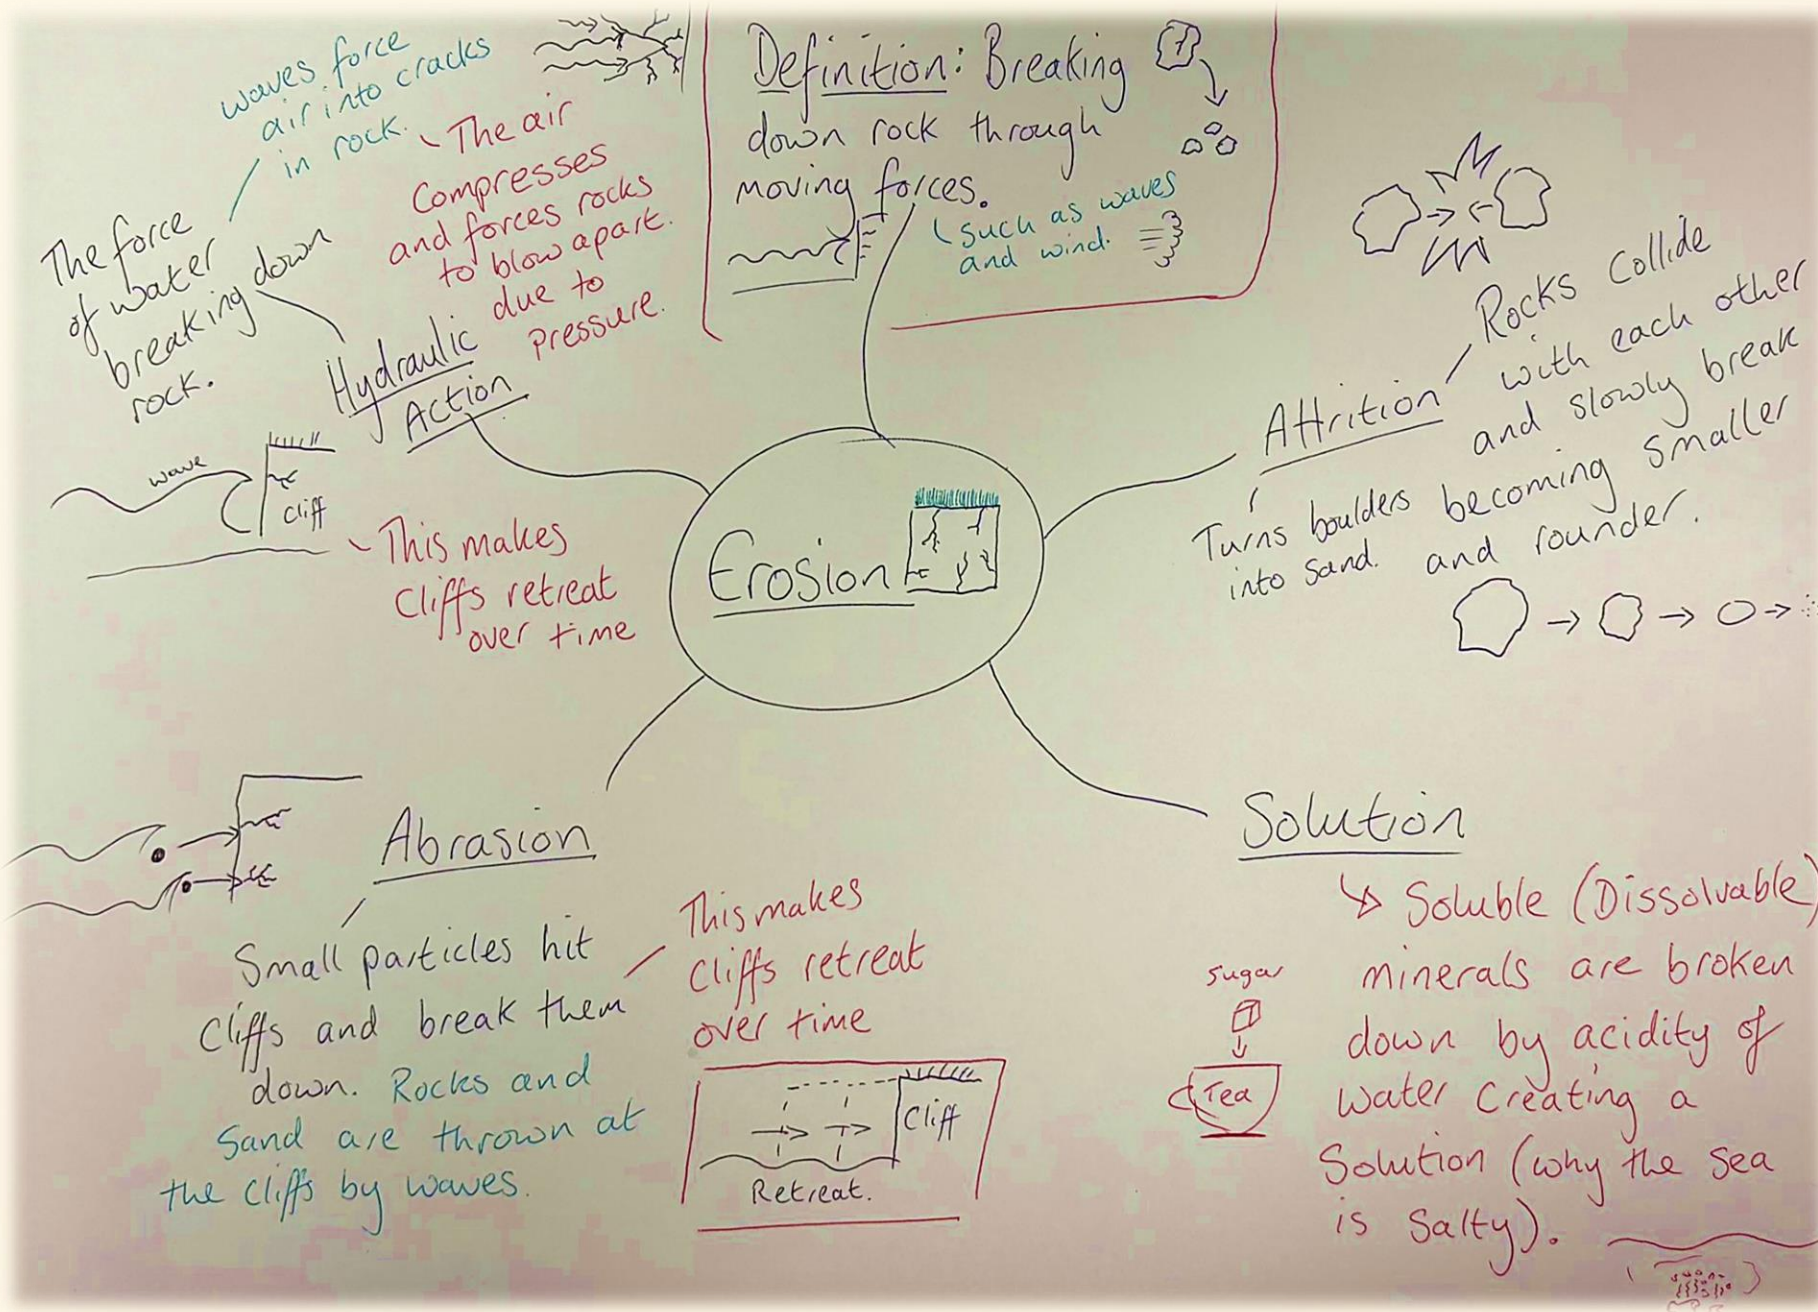 Definition: Breaking
down rock through
moving forces.
such as waves
and wind.
Erosion
Hydraulic
Action
The force
of water
breaking down
rock.
waves force
air into cracks
in rock.
The air
Compresses
and forces rocks
to blow apart.
due to
pressure.
wave
Cliff
This makes
Cliffs retreat
over time
Attrition
Rocks Collide
with each other
and slowly break
becoming smaller
and rounder.
Turns boulders
into sand.
Abrasion
Small particles hit
Cliffs and break them
down. Rocks and
Sand are thrown at
the cliffs by waves.
This makes
Cliffs retreat
over time
Cliff
Retreat.
Solution
Soluble (Dissolvable)
minerals are broken
down by acidity of
water creating a
Solution (why the sea
is salty).
sugar
Tea